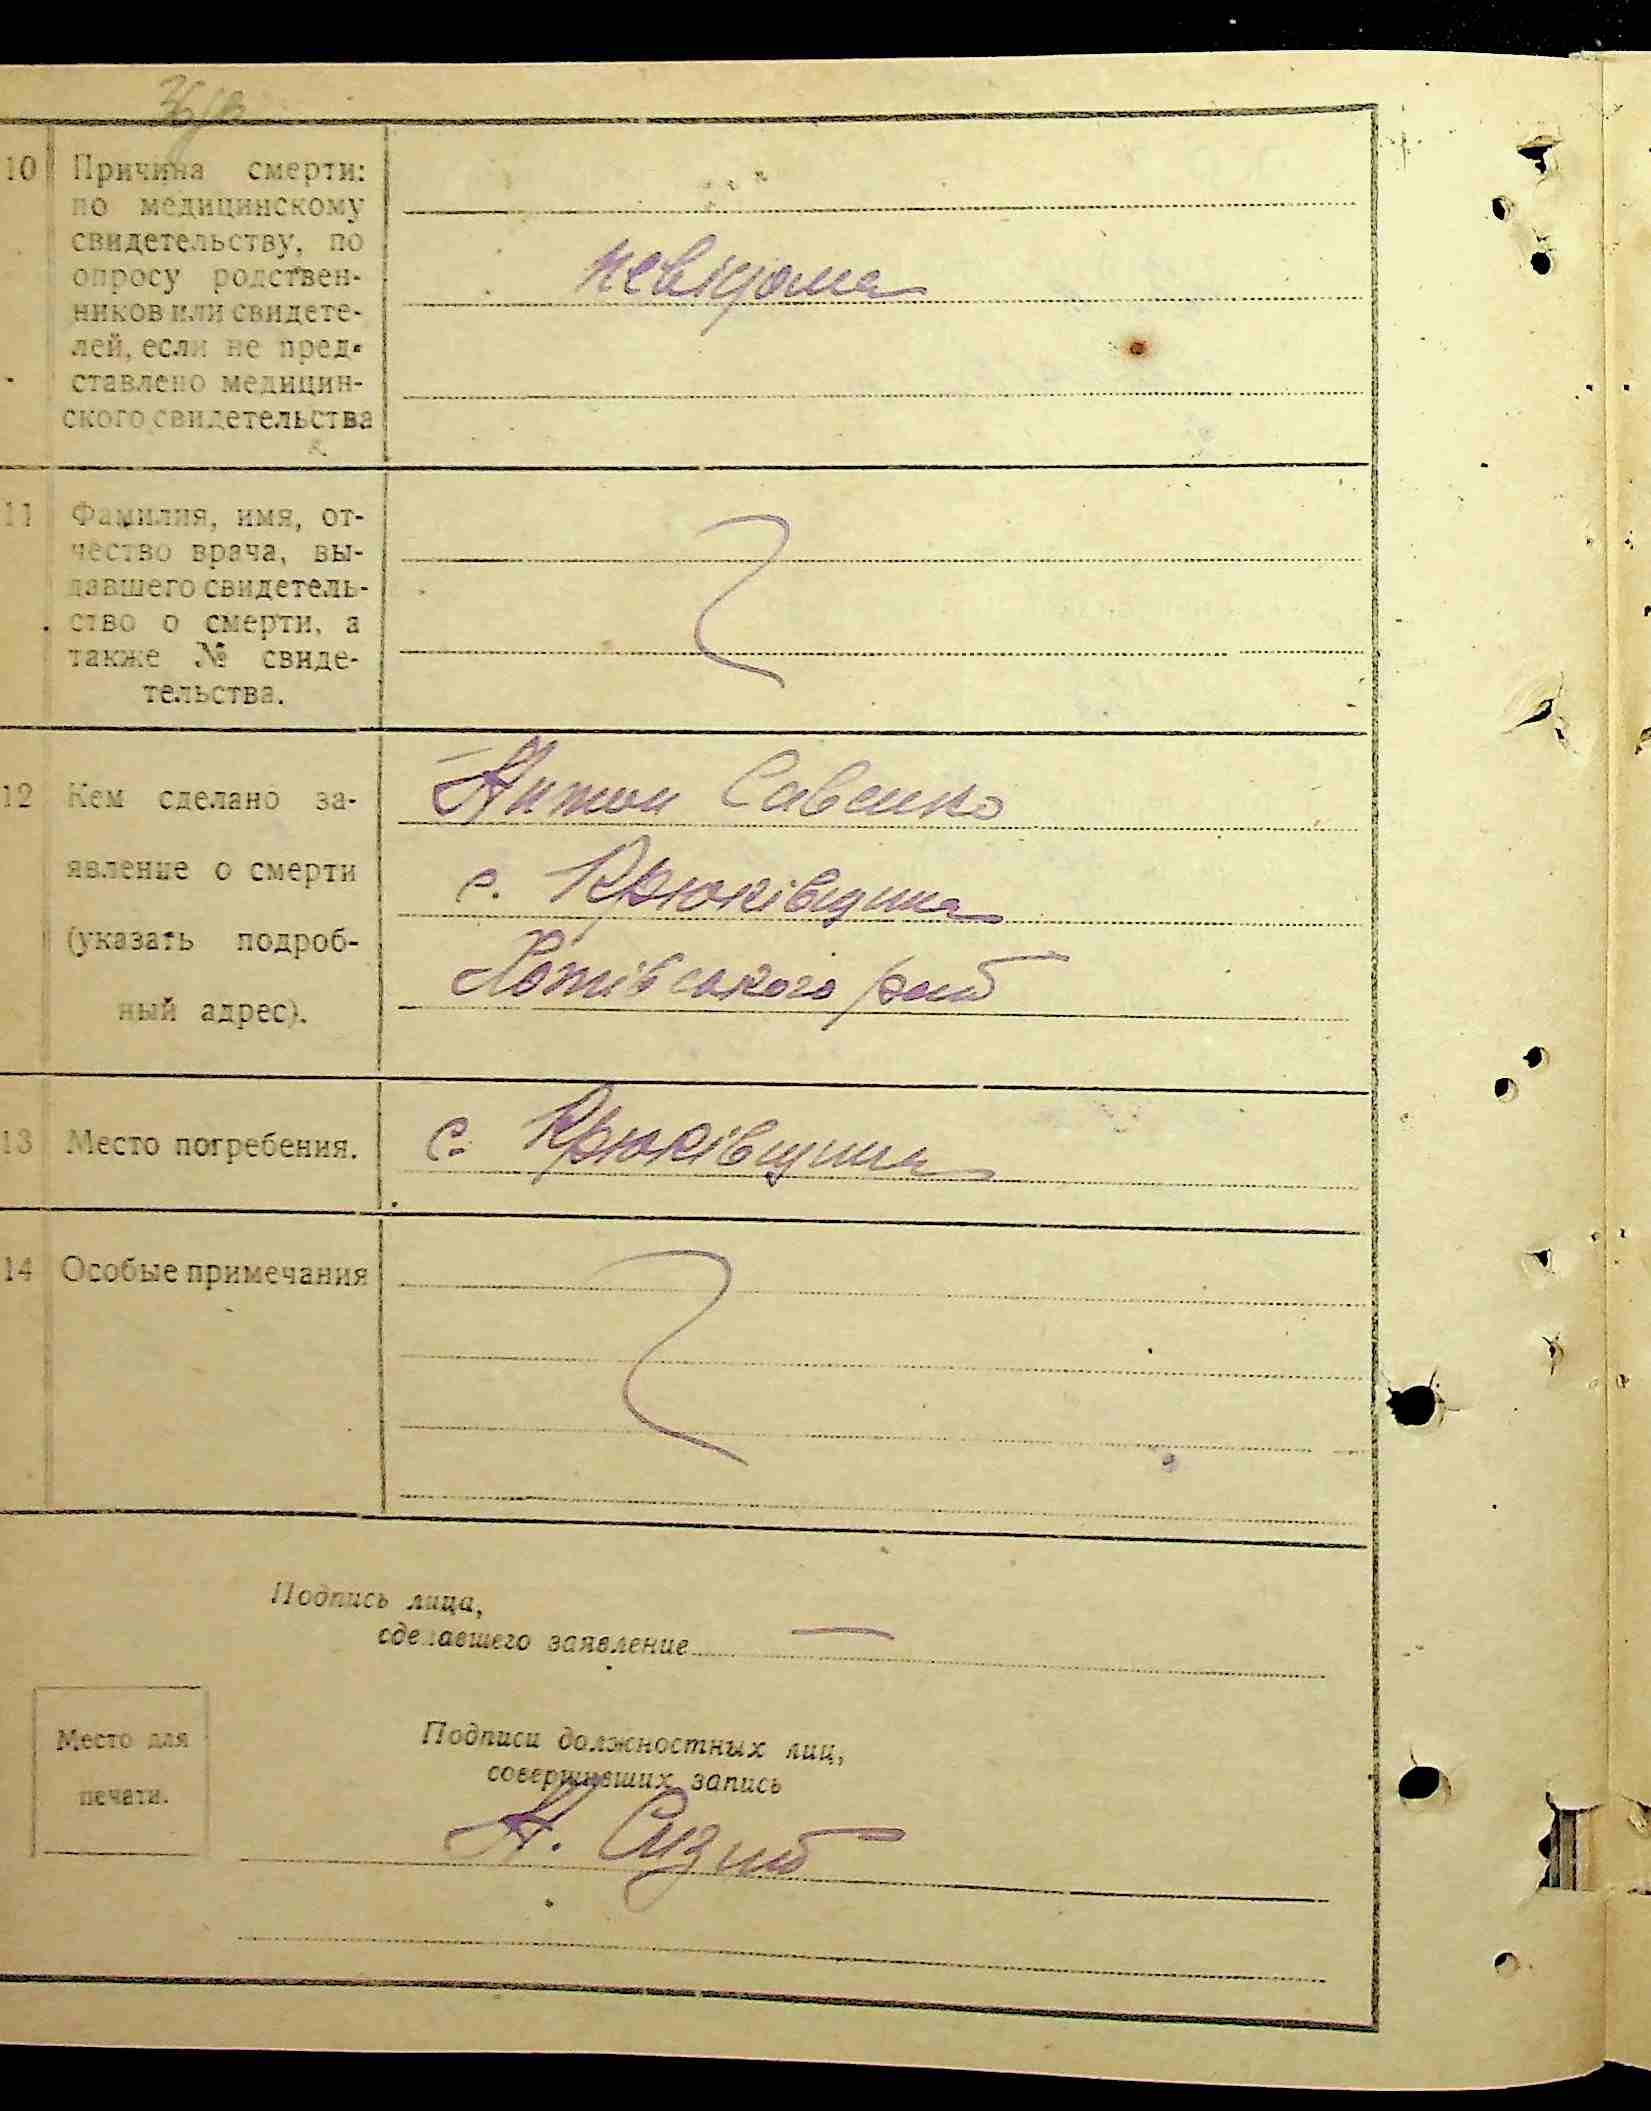 10 Причина смерти:
по медицинскому
свидетельству, по
опросу родствен-
ников или свидете-
лей, если не пред-
ставлено медицин-
ского свидетельства
невідома
11 Фамилия, имя, от-
чество врача, вы-
давшего свидетель-
ство о смерти, а
также № свиде-
тельства.
12 Кем сделано за-
явление о смерти
(указать подроб-
ный адрес).
Антон Савенко
с. Крюківщина
Хотівського рай
13 Место погребения.
с. Крюківщина
14 Особые примечания
Подпись лица,
сделавшего заявление
—
Место для
печати.
Подписи должностных лиц,
совершивших запись
А.